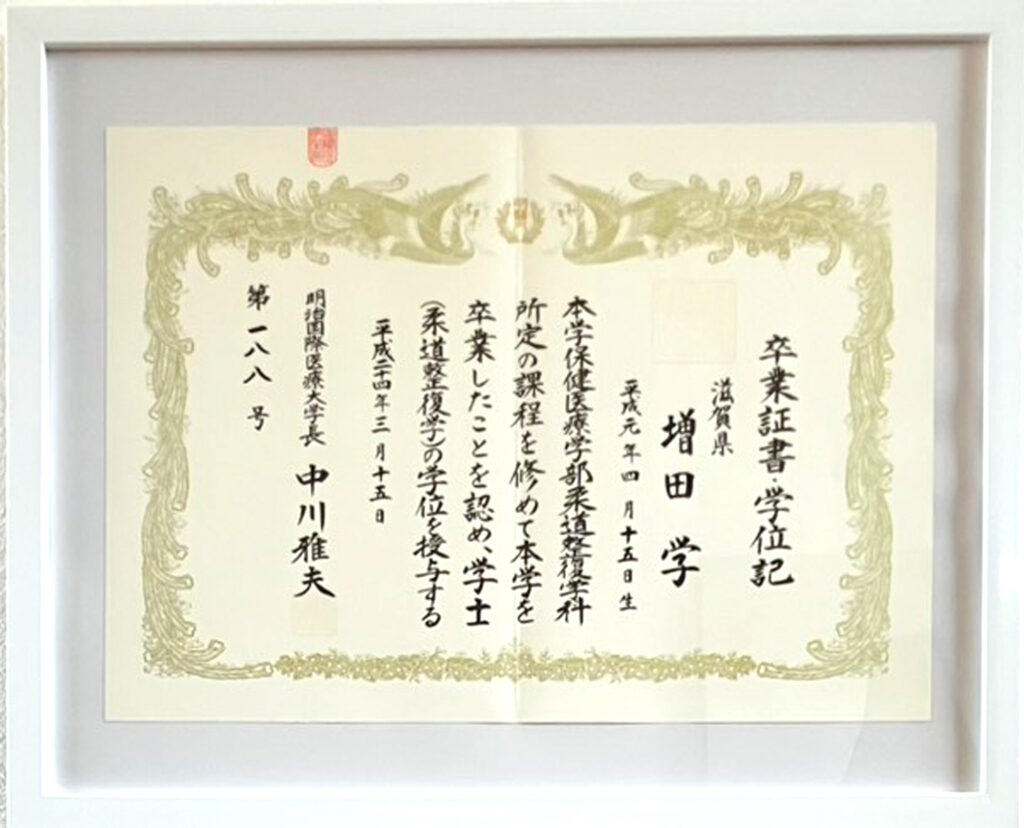 卒業証書・学位記
滋賀県
増田 学
平成元年四月十五日生
本学保健医療学部柔道整復学科
所定の課程を修めて本学を
卒業したことを認め、学士
(柔道整復学)の学位を授与する
平成二十四年三月十五日
明治国際医療大学長 中川雅夫
第一八八号